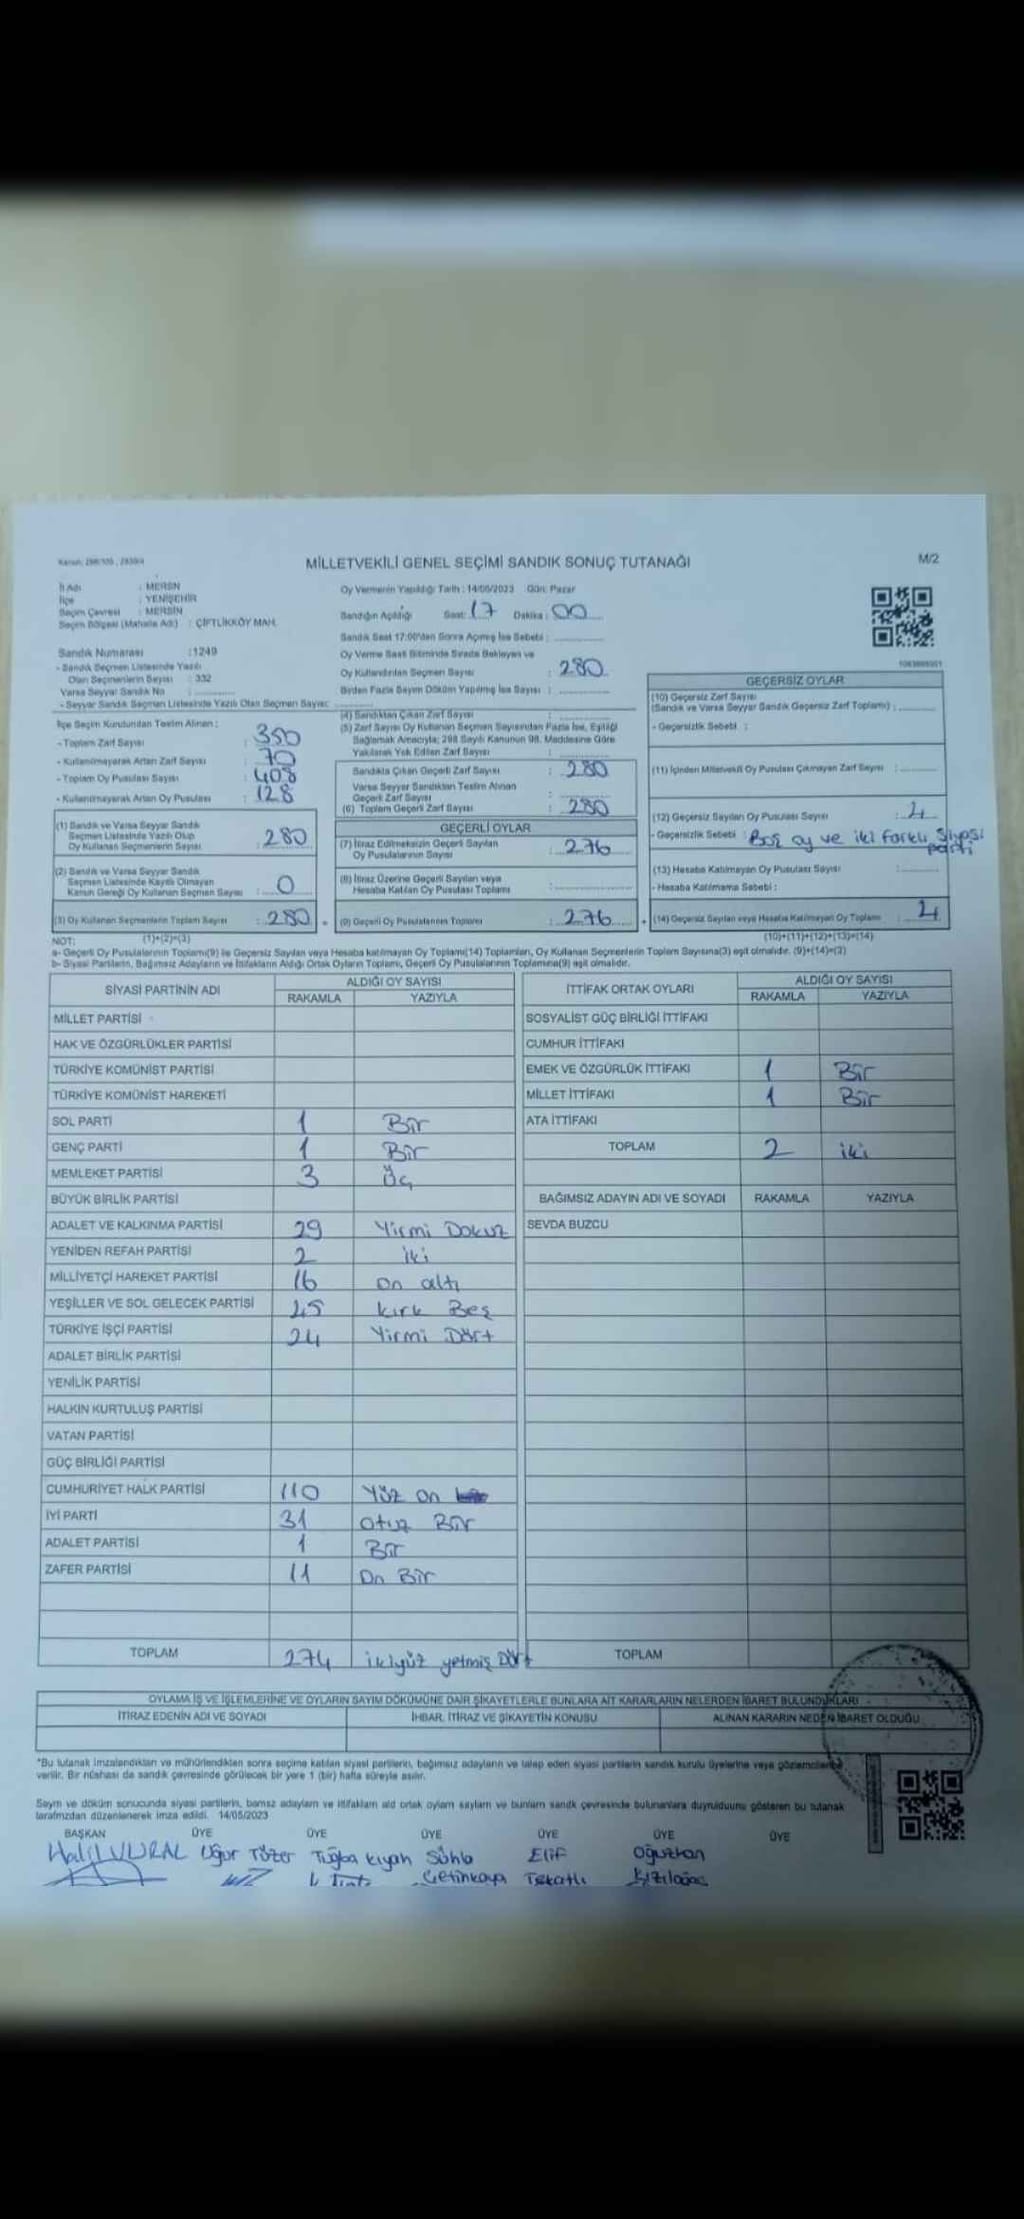 MİLLETVEKİLİ GENEL SEÇİMİ SANDIK SONUÇ TUTANAĞI
M/2
İl Adı : MERSİN
İlçe : YENİŞEHİR
Seçim Çevresi : MERSİN
Seçim Bölgesi (Mahalle Adı) : ÇİFTLİKKÖY MAH.
Oy Vermenin Yapıldığı Tarih : 14/05/2023 Gün: Pazar
Sandığın Açıldığı Saat: 17 Dakika : 00
Sandık Saat 17:00'den Sonra Açılmış İse Sebebi :
Oy Verme Saati Bitiminde Sırada Bekleyen ve
Oy Kullandırılan Seçmen Sayısı : 280
Birden Fazla Sayım Döküm Yapılmış İse Sayısı :
Sandık Numarası :1249
- Sandık Seçmen Listesinde Yazılı
Olan Seçmenlerin Sayısı : 332
Varsa Seyyar Sandık No :
- Seyyar Sandık Seçmen Listesinde Yazılı Olan Seçmen Sayısı:
İlçe Seçim Kurulundan Teslim Alınan :
- Toplam Zarf Sayısı : 350
- Kullanılmayarak Artan Zarf Sayısı : 70
- Toplam Oy Pusulası Sayısı : 408
- Kullanılmayarak Artan Oy Pusulası : 128
(1) Sandık ve Varsa Seyyar Sandık
Seçmen Listesinde Yazılı Olup
Oy Kullanan Seçmenlerin Sayısı : 280
(2) Sandık ve Varsa Seyyar Sandık
Seçmen Listesinde Kayıtlı Olmayan
Kanun Gereği Oy Kullanan Seçmen Sayısı : 0
(3) Oy Kullanan Seçmenlerin Toplam Sayısı : 280
(1)+(2)=(3)
(4) Sandıktan Çıkan Zarf Sayısı :
(5) Zarf Sayısı Oy Kullanan Seçmen Sayısından Fazla İse, Eşitliği
Sağlamak Amacıyla; 298 Sayılı Kanunun 98. Maddesine Göre
Yakılarak Yok Edilen Zarf Sayısı :
Sandıkta Çıkan Geçerli Zarf Sayısı : 280
Varsa Seyyar Sandıktan Teslim Alınan
Geçerli Zarf Sayısı :
(6) Toplam Geçerli Zarf Sayısı : 280
GEÇERLİ OYLAR
(7) İtiraz Edilmeksizin Geçerli Sayılan
Oy Pusulalarının Sayısı : 276
(8) İtiraz Üzerine Geçerli Sayılan veya
Hesaba Katılan Oy Pusulası Toplamı :
(9) Geçerli Oy Pusulalarının Toplamı : 276
GEÇERSİZ OYLAR
(10) Geçersiz Zarf Sayısı
(Sandık ve Varsa Seyyar Sandık Geçersiz Zarf Toplamı) :
- Geçersizlik Sebebi :
(11) İçinden Milletvekili Oy Pusulası Çıkmayan Zarf Sayısı :
(12) Geçersiz Sayılan Oy Pusulası Sayısı : 4
- Geçersizlik Sebebi : Boş oy ve iki farklı siyasi parti
(13) Hesaba Katılmayan Oy Pusulası Sayısı :
- Hesaba Katılmama Sebebi :
(14) Geçersiz Sayılan veya Hesaba Katılmayan Oy Toplamı : 4
(10)+(11)+(12)+(13)=(14)
NOT:
a- Geçerli Oy Pusulalarının Toplamı(9) ile Geçersiz Sayılan veya Hesaba katılmayan Oy Toplamı(14) Toplamları, Oy Kullanan Seçmenlerin Toplam Sayısına(3) eşit olmalıdır. (9)+(14)=(3)
b- Siyasi Partilerin, Bağımsız Adayların ve İttifakların Aldığı Ortak Oyların Toplamı, Geçerli Oy Pusulalarının Toplamına(9) eşit olmalıdır.
SİYASİ PARTİNİN ADI ALDIĞI OY SAYISI
RAKAMLA YAZIYLA
MİLLET PARTİSİ
HAK VE ÖZGÜRLÜKLER PARTİSİ
TÜRKİYE KOMÜNİST PARTİSİ
TÜRKİYE KOMÜNİST HAREKETİ
SOL PARTİ 1 Bir
GENÇ PARTİ 1 Bir
MEMLEKET PARTİSİ 3 Üç
BÜYÜK BİRLİK PARTİSİ
ADALET VE KALKINMA PARTİSİ 29 Yirmi Dokuz
YENİDEN REFAH PARTİSİ 2 iki
MİLLİYETÇİ HAREKET PARTİSİ 16 on altı
YEŞİLLER VE SOL GELECEK PARTİSİ 45 kırk Beş
TÜRKİYE İŞÇİ PARTİSİ 24 Yirmi Dört
ADALET BİRLİK PARTİSİ
YENİLİK PARTİSİ
HALKIN KURTULUŞ PARTİSİ
VATAN PARTİSİ
GÜÇ BİRLİĞİ PARTİSİ
CUMHURİYET HALK PARTİSİ 110 Yüz on
İYİ PARTİ 31 otuz Bir
ADALET PARTİSİ 1 Bir
ZAFER PARTİSİ 11 On Bir
TOPLAM 274 ikiyüz yetmiş Dört
İTTİFAK ORTAK OYLARI ALDIĞI OY SAYISI
RAKAMLA YAZIYLA
SOSYALİST GÜÇ BİRLİĞİ İTTİFAKI
CUMHUR İTTİFAKI
EMEK VE ÖZGÜRLÜK İTTİFAKI 1 Bir
MİLLET İTTİFAKI 1 Bir
ATA İTTİFAKI
TOPLAM 2 iki
BAĞIMSIZ ADAYIN ADI VE SOYADI RAKAMLA YAZIYLA
SEVDA BUZCU
TOPLAM
OYLAMA İŞ VE İŞLEMLERİNE VE OYLARIN SAYIM DÖKÜMÜNE DAİR ŞİKAYETLERLE BUNLARA AİT KARARLARIN NELERDEN İBARET BULUNDUKLARI
İTİRAZ EDENİN ADI VE SOYADI İHBAR, İTİRAZ VE ŞİKAYETİN KONUSU ALINAN KARARIN NEDEN İBARET OLDUĞU
*Bu tutanak imzalandıktan ve mühürlendikten sonra seçime katılan siyasi partilerin, bağımsız adayların ve talep eden siyasi partilerin sandık kurulu üyelerine veya gözlemcilerine
verilir. Bir nüshası da sandık çevresinde görülecek bir yere 1 (bir) hafta süreyle asılır.
Sayım ve döküm sonucunda siyasi partilerin, bamsz adayların ve ittifakların ald ortak oyların sayların ve bunların sandk çevresinde bulunanlara duyrulduunu gösteren bu tutanak
tarafmzdan düzenlenerek imza edildi. 14/05/2023
BAŞKAN ÜYE ÜYE ÜYE ÜYE ÜYE ÜYE
Halil VURAL Uğur Tözer Tuğba Kıyah Sühla Elif Oğuzhan
Çetinkaya Tekatlı Kızılağaç